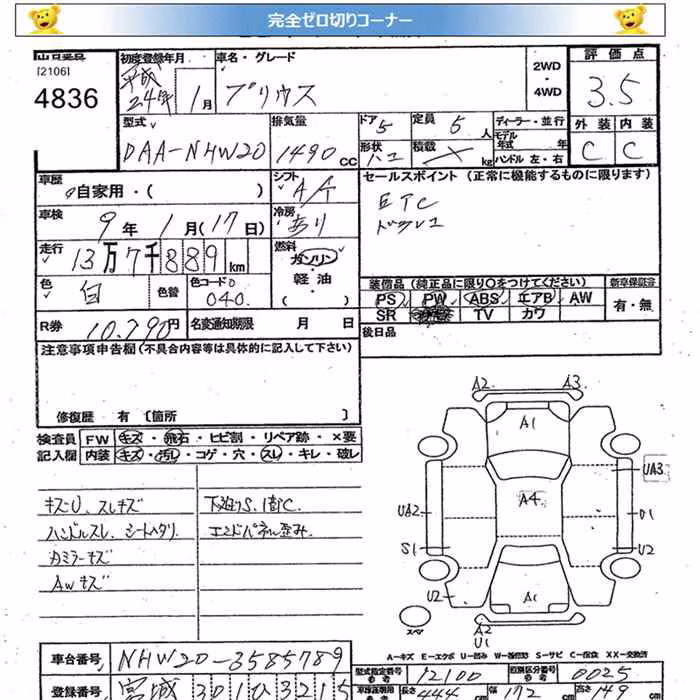 完全ゼロ切りコーナー
出品番号 初度登録年月 車名・グレード 2WD ・ 4WD 評価点
[2106]
4836 平成 24年 1月 プリウス 3.5
型式 排気量 ドア 5 定員 5人 ディーラー・並行 外装 内装
DAA-NHW20 1490cc 形状 ハコ 積載 kg モデル年式 年 C C
ハンドル 左・右
車歴 自家用・( ) シフト A/T セールスポイント (正常に機能するものに限ります)
車検 9年 1月(17日) 冷房 あり ETC
走行 13万7千889km 燃料 ガソリン ・ 軽油 ・ ( )
色 白 色替 色コードNo 040 装備品 (純正品に限り○をつけてください) 新車保証書
PS PW ABS エアB AW 有・無
SR TV カワ
R券 10,790円 名変通知期限 月 日 後日品
注意事項申告欄(不具合内容等は具体的に記入して下さい)
修復歴 有 〔箇所 〕
検査員 FW キズ・飛石・ヒビ割・リペア跡・×要
記入欄 内装 キズ・汚レ・コゲ・穴・スレ・キレ・破レ
キズU、スレキズ 下廻りS、街C
ハンドルスレ、シートヘタリ エンドパネル歪み
カミラーキズ
AWキズ
A2 A3
A1
UA3
A4
UA2 U1
S1 U2
U2 A1
スペア A2
U1
A-キズ E-エクボ U-凹み W-補修跡 S-サビ C-腐食 XX-交換済
車台番号 NHW20-3585789
型式指定番号 12100 類別区分番号 0025
登録番号 宮城 301 ひ 3215
長さ 444 cm 幅 172 cm 高さ 149 cm